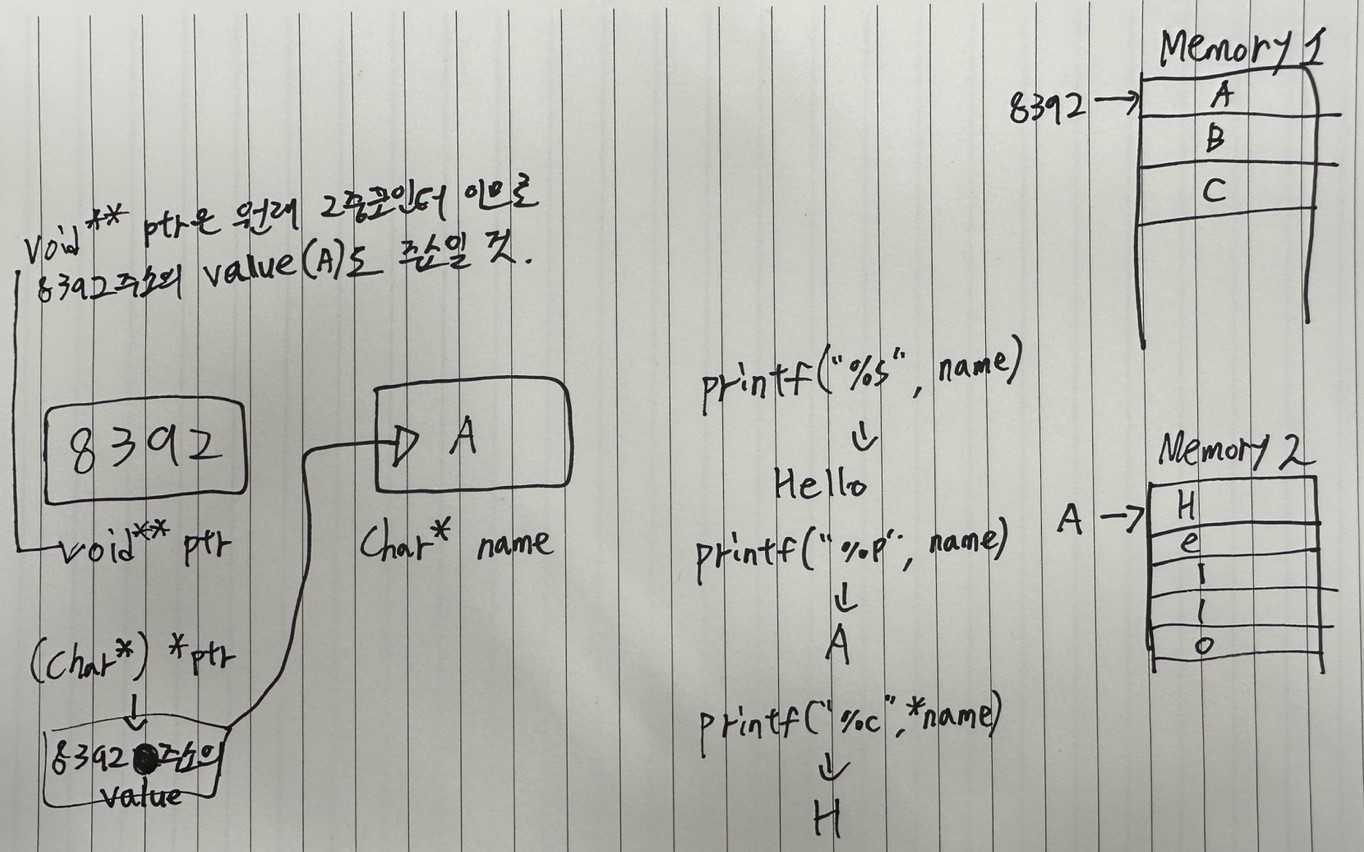 Void** ptr은 원래 2중포인터 이므로
8392주소의 value(A)도 주소일 것.
8392
void** ptr
A
Char* name
(Char*) *ptr
↓
8392 주소의
value
printf("%s", name)
↓
Hello
printf("%p", name)
↓
A
printf("%c",*name)
↓
H
Memory 1
8392 → A
B
C
Memory 2
A → H
e
l
l
o